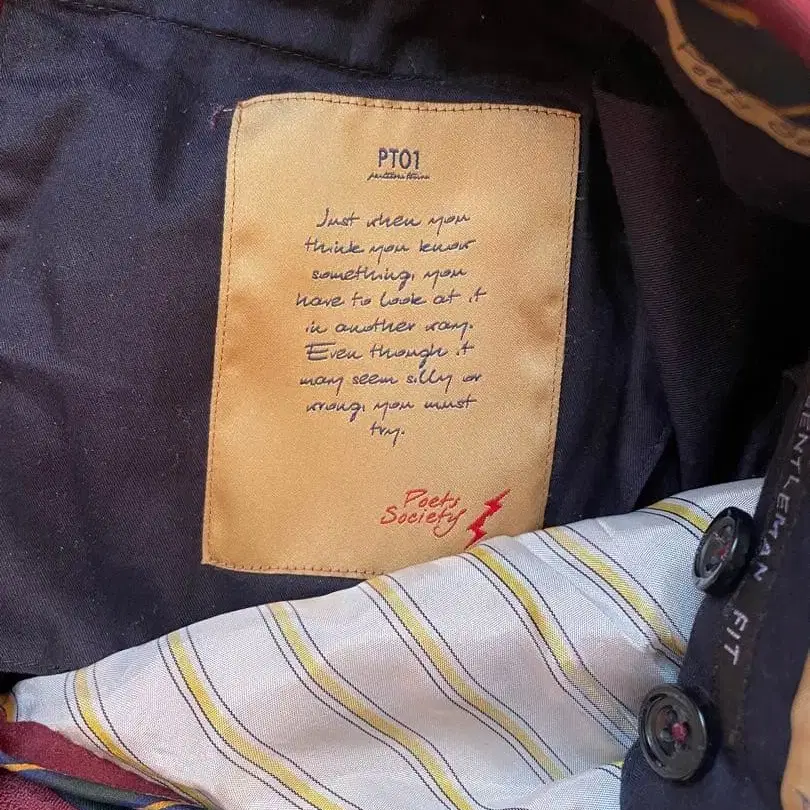 PT01
pantaloni torino
Just when you
think you know
something, you
have to look at it
in another way.
Even though it
may seem silly or
wrong, you must
try.
Poets
Society
GENTLEMAN FIT